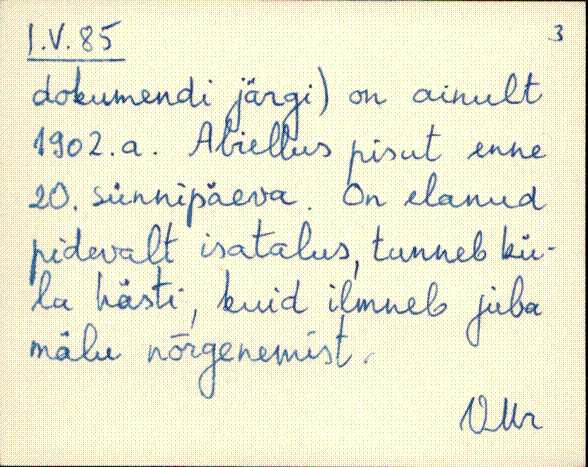 I.V.85 3
dokumendi järgi) on ainult
1902.a. Abiellus pisut enne
20. sünnipäeva. On elanud
pidevalt isatalus, tunneb kü-
la hästi, kuid ilmneb juba
mälu nõrgenemist.